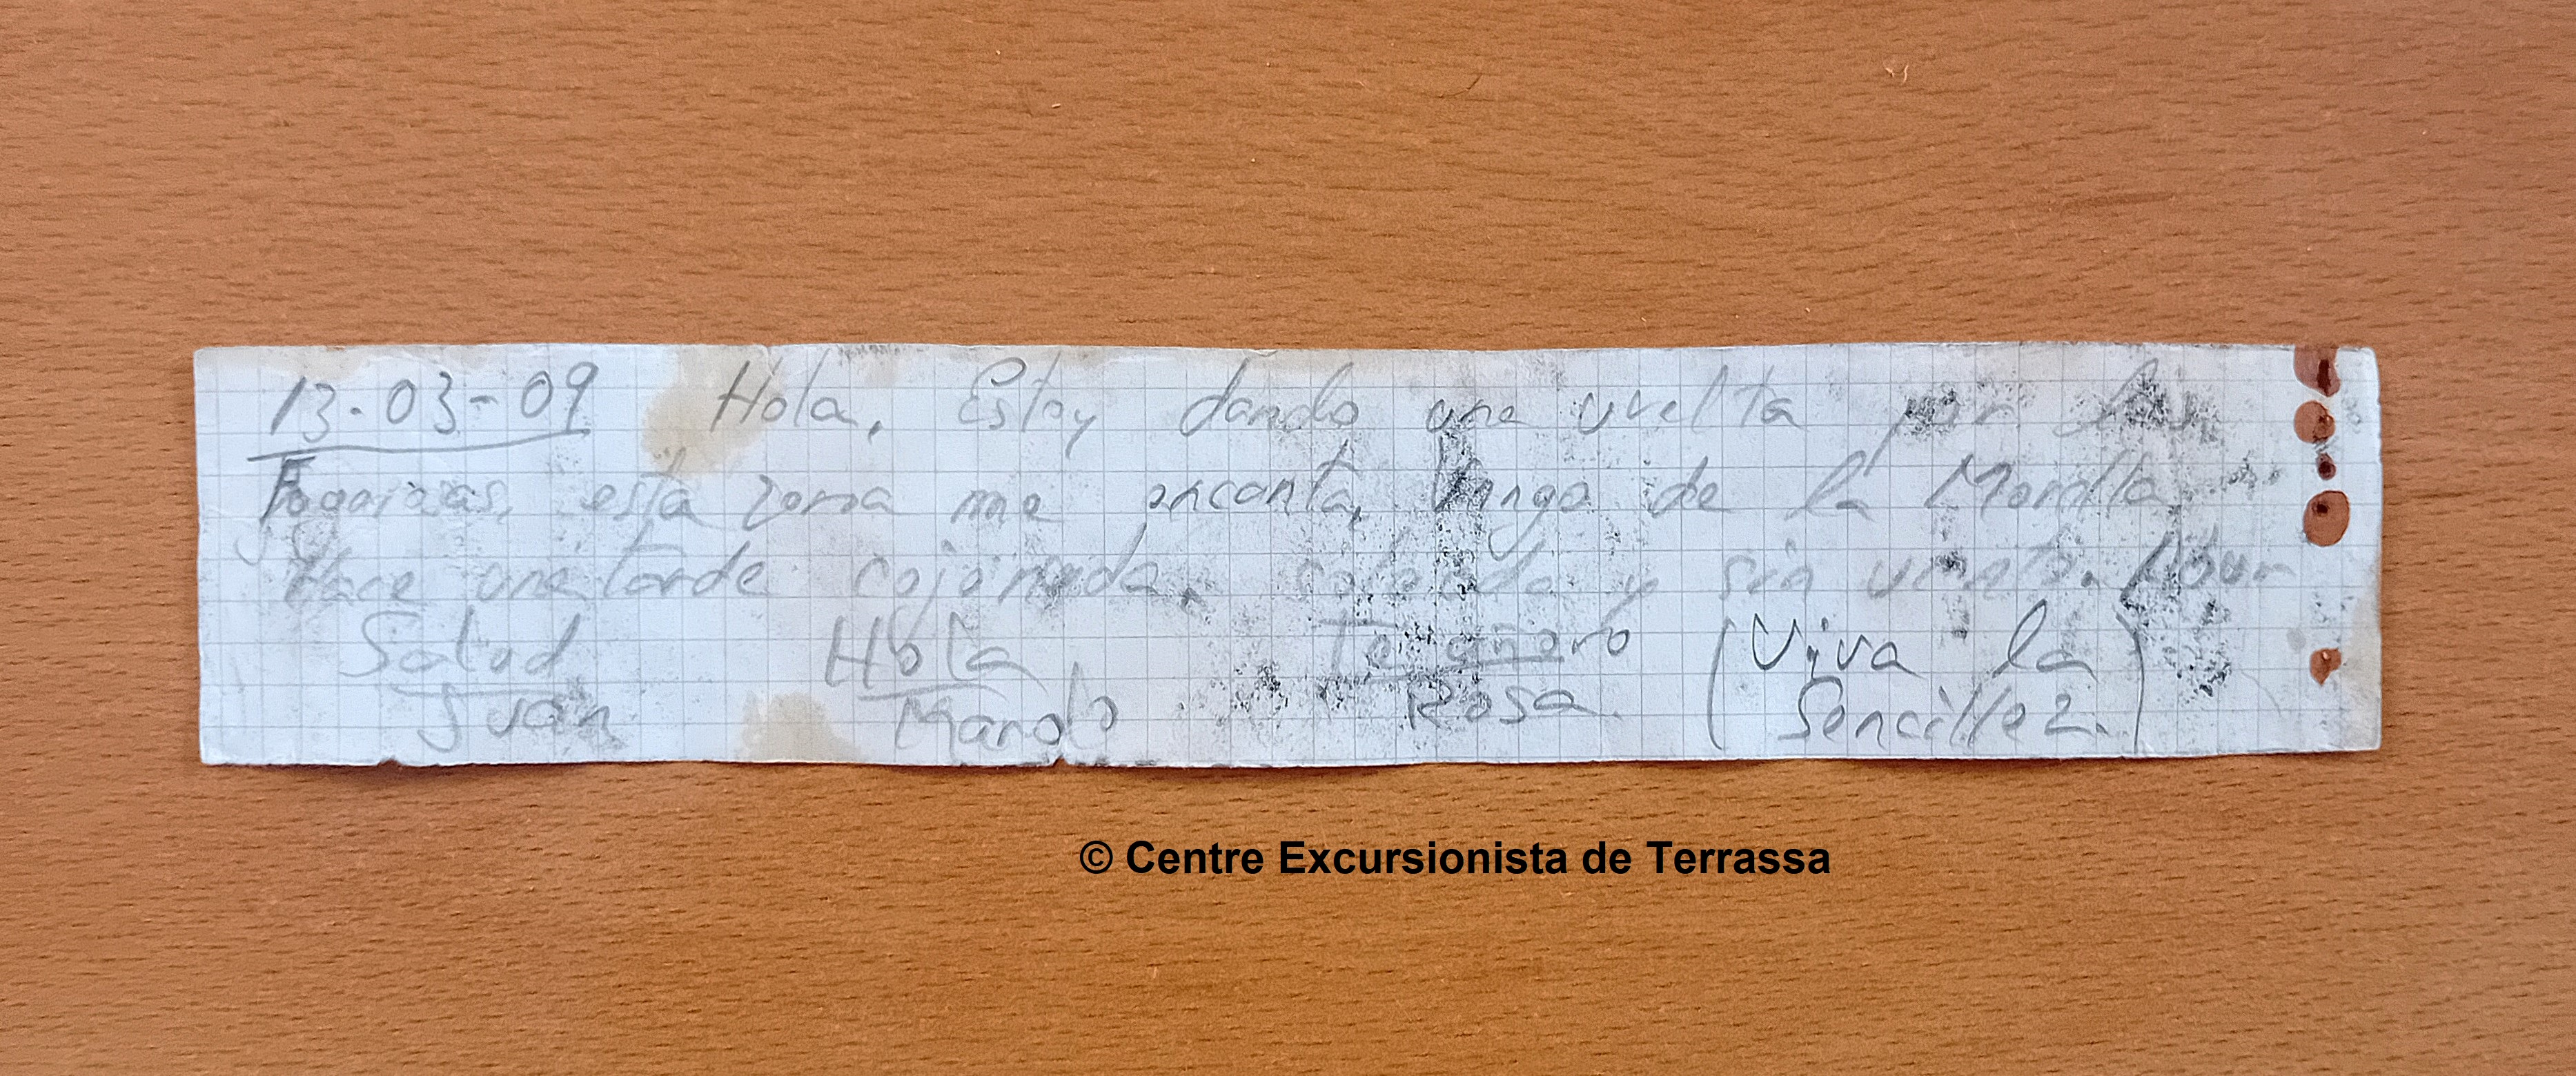 13-03-09 Hola, Estoy dando una vuelta por las
Fogariasas, esta zona me encanta, Vengo de la Morella
Hace una tarde cojonuda, soleada y sin viento.
Salud Hola Te añoro (Viva la
Juan Manolo Rosa. Sencillez.)
© Centre Excursionista de Terrassa